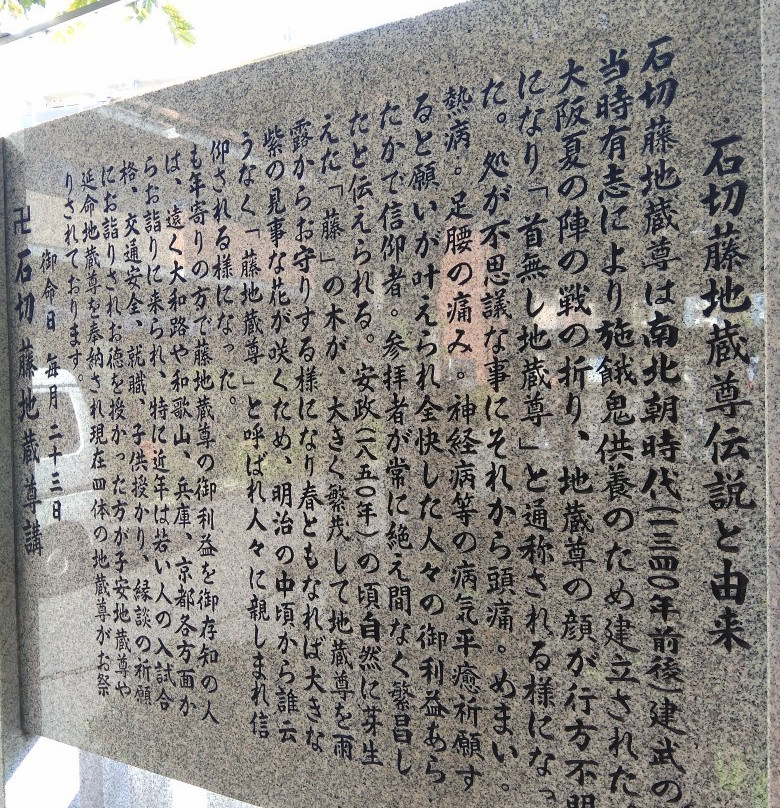 石切藤地蔵尊伝説と由来
石切藤地蔵尊は南北朝時代(一三四〇年前後)建武の
当時有志により施餓鬼供養のため建立された
大阪夏の陣の戦の折り、地蔵尊の顔が行方不明
になり「首無し地蔵尊」と通称される様になっ
た。処が不思議な事にそれから頭痛。めまい。
熱病。足腰の痛み。神経病等の病気平癒祈願す
ると願いが叶えられ全快した人々の御利益あら
たかで信仰者。参拝者が常に絶え間なく繁昌し
たと伝えられる。安政(一八五〇年)の頃自然に芽生
えた「藤」の木が、大きく繁茂して地蔵尊を雨
露からお守りする様になり春ともなれば大きな
紫の見事な花が咲くため、明治の中頃から誰云
うなく「藤地蔵尊」と呼ばれ人々に親しまれ信
仰される様になった。
も年寄りの方で藤地蔵尊の御利益を御存知の人
は、遠く大和路や和歌山、兵庫、京都各方面か
らお詣りに来られ、特に近年は若い人の入試合
格、交通安全、就職、子供授かり、縁談の祈願
にお詣りされお徳を授かった方が子安地蔵尊や
延命地蔵尊を奉納され現在四体の地蔵尊がお祭
りされております。
御命日 毎月二十三日
卍石切 藤地蔵尊講